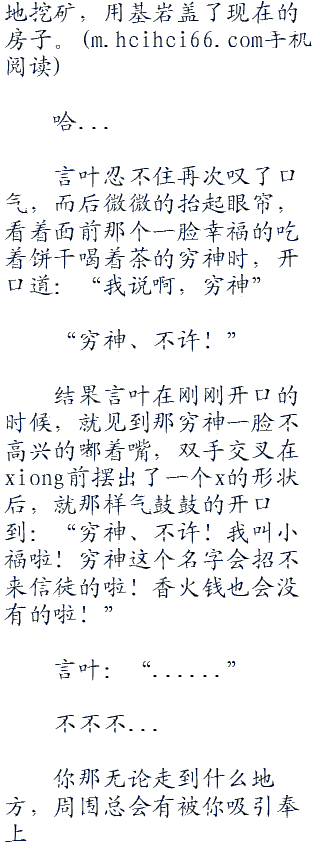 地挖矿，用基岩盖了现在的
房子。(m.hcihci66.com手机
阅读)
哈...
言叶忍不住再次叹了口
气，而后微微的抬起眼帘，
看着面前那个一脸幸福的吃
着饼干喝着茶的穷神时，开
口道：“我说啊，穷神”
“穷神、不许！”
结果言叶在刚刚开口的
时候，就见到那穷神一脸不
高兴的嘟着嘴，双手交叉在
xiong前摆出了一个x的形状
后，就那样气鼓鼓的开口
到：“穷神、不许！我叫小
福啦！穷神这个名字会招不
来信徒的啦！香火钱也会没
有的啦！”
言叶：“......”
不不不...
你那无论走到什么地
方，周围总会有被你吸引奉
上